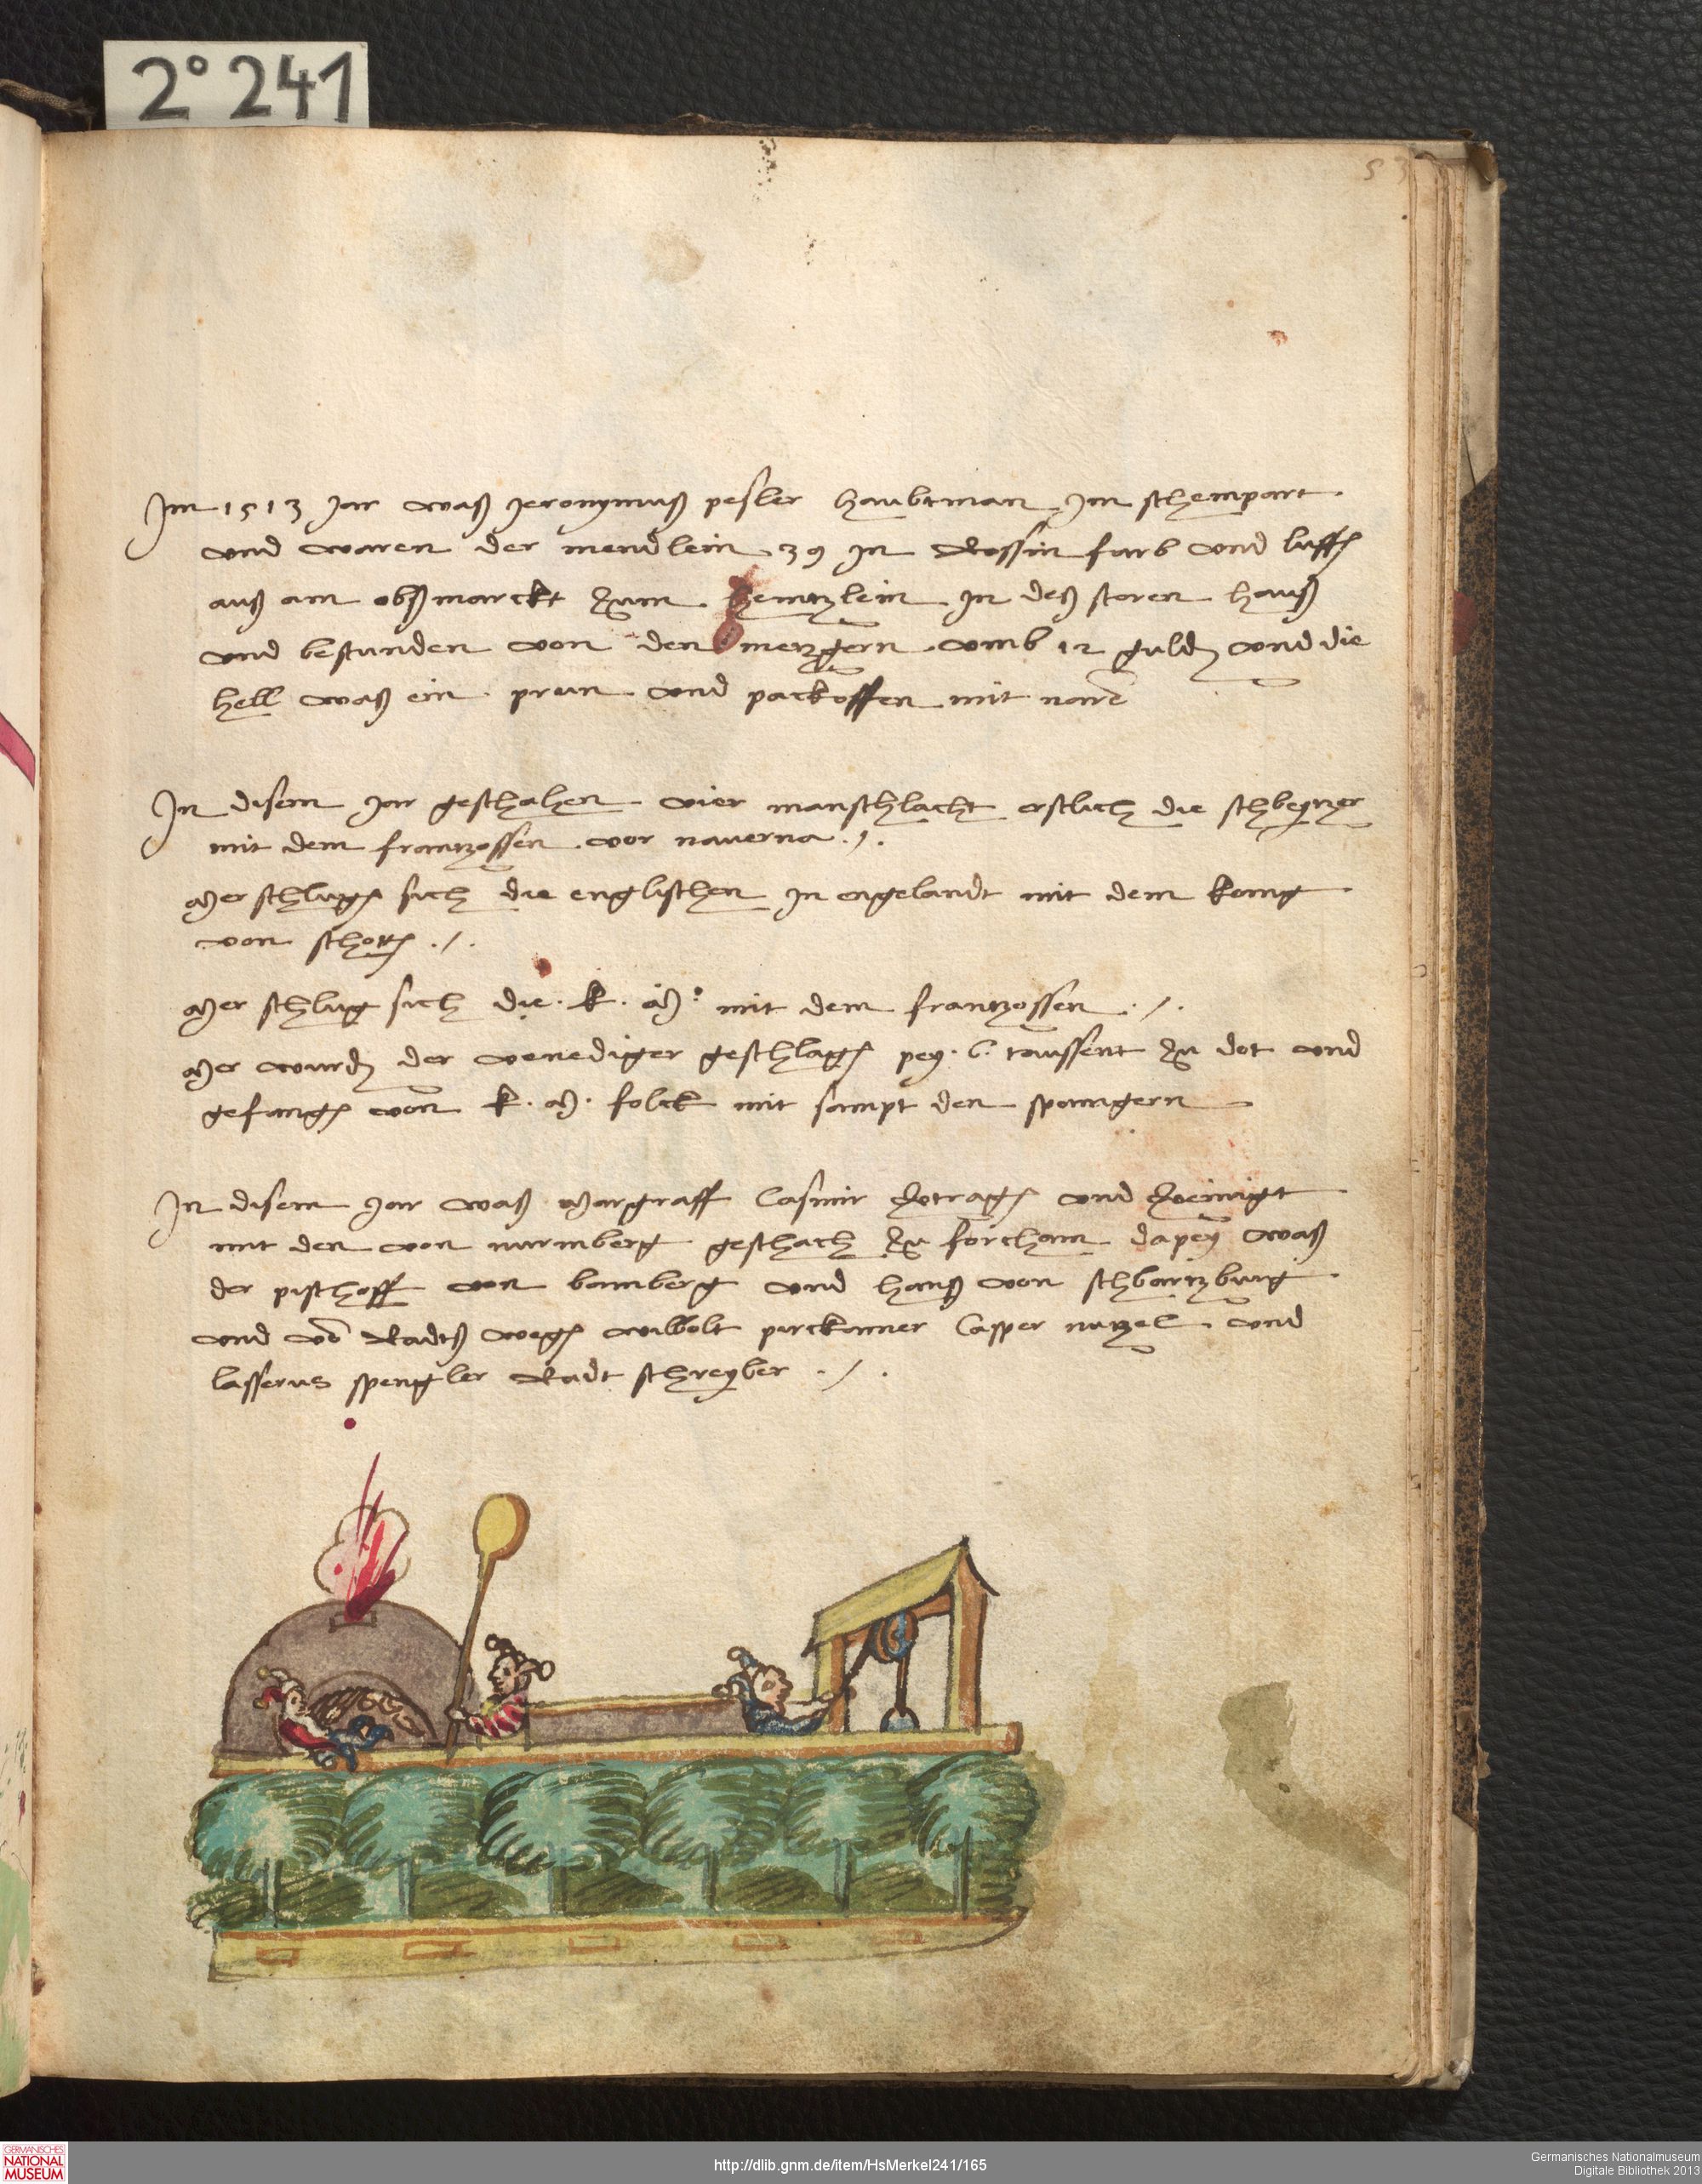 2° 241
53
Im 1513 Jar waß Jeronymuß peßler haubtman Im schempart
und waren der mendlein 39 In Rossin farb und luffen
auß am obßmarckt zum hentzlein In deß storen hauß
und bestunden von den metzgern umb 12 guldn und die
hell waß ein prun und packoffen mit narrn
In disem Jar geschahen vier manschlacht erstlich die schbeytzer
mit dem frantzossen vor naverna ./.
Mer schlugen sich die englischen In engelandt mit dem konig
von schotten ./.
Mer schlug sich die k. M. mit dem frantzossen ./.
Mer wurdn der venediger geschlagen pey 6 taussent zu dot und
gefangen von k. M. folck mit sampt den spangern
In disem Jar waß Margraff Casimir vertragen und vereinigt
mit den von nurmberg geschach zu forcham dapey waß
der pischoff von bamberg und hanß von schbartzburg
und von Radtß wegen wilbolt pirckamer Casper nutzel und
lasserus spengler Radt schreyber ./.
GERMANISCHES
NATIONAL
MUSEUM
http://dlib.gnm.de/item/HsMerkel241/165
Germanisches Nationalmuseum
Digitale Bibliothek 2013